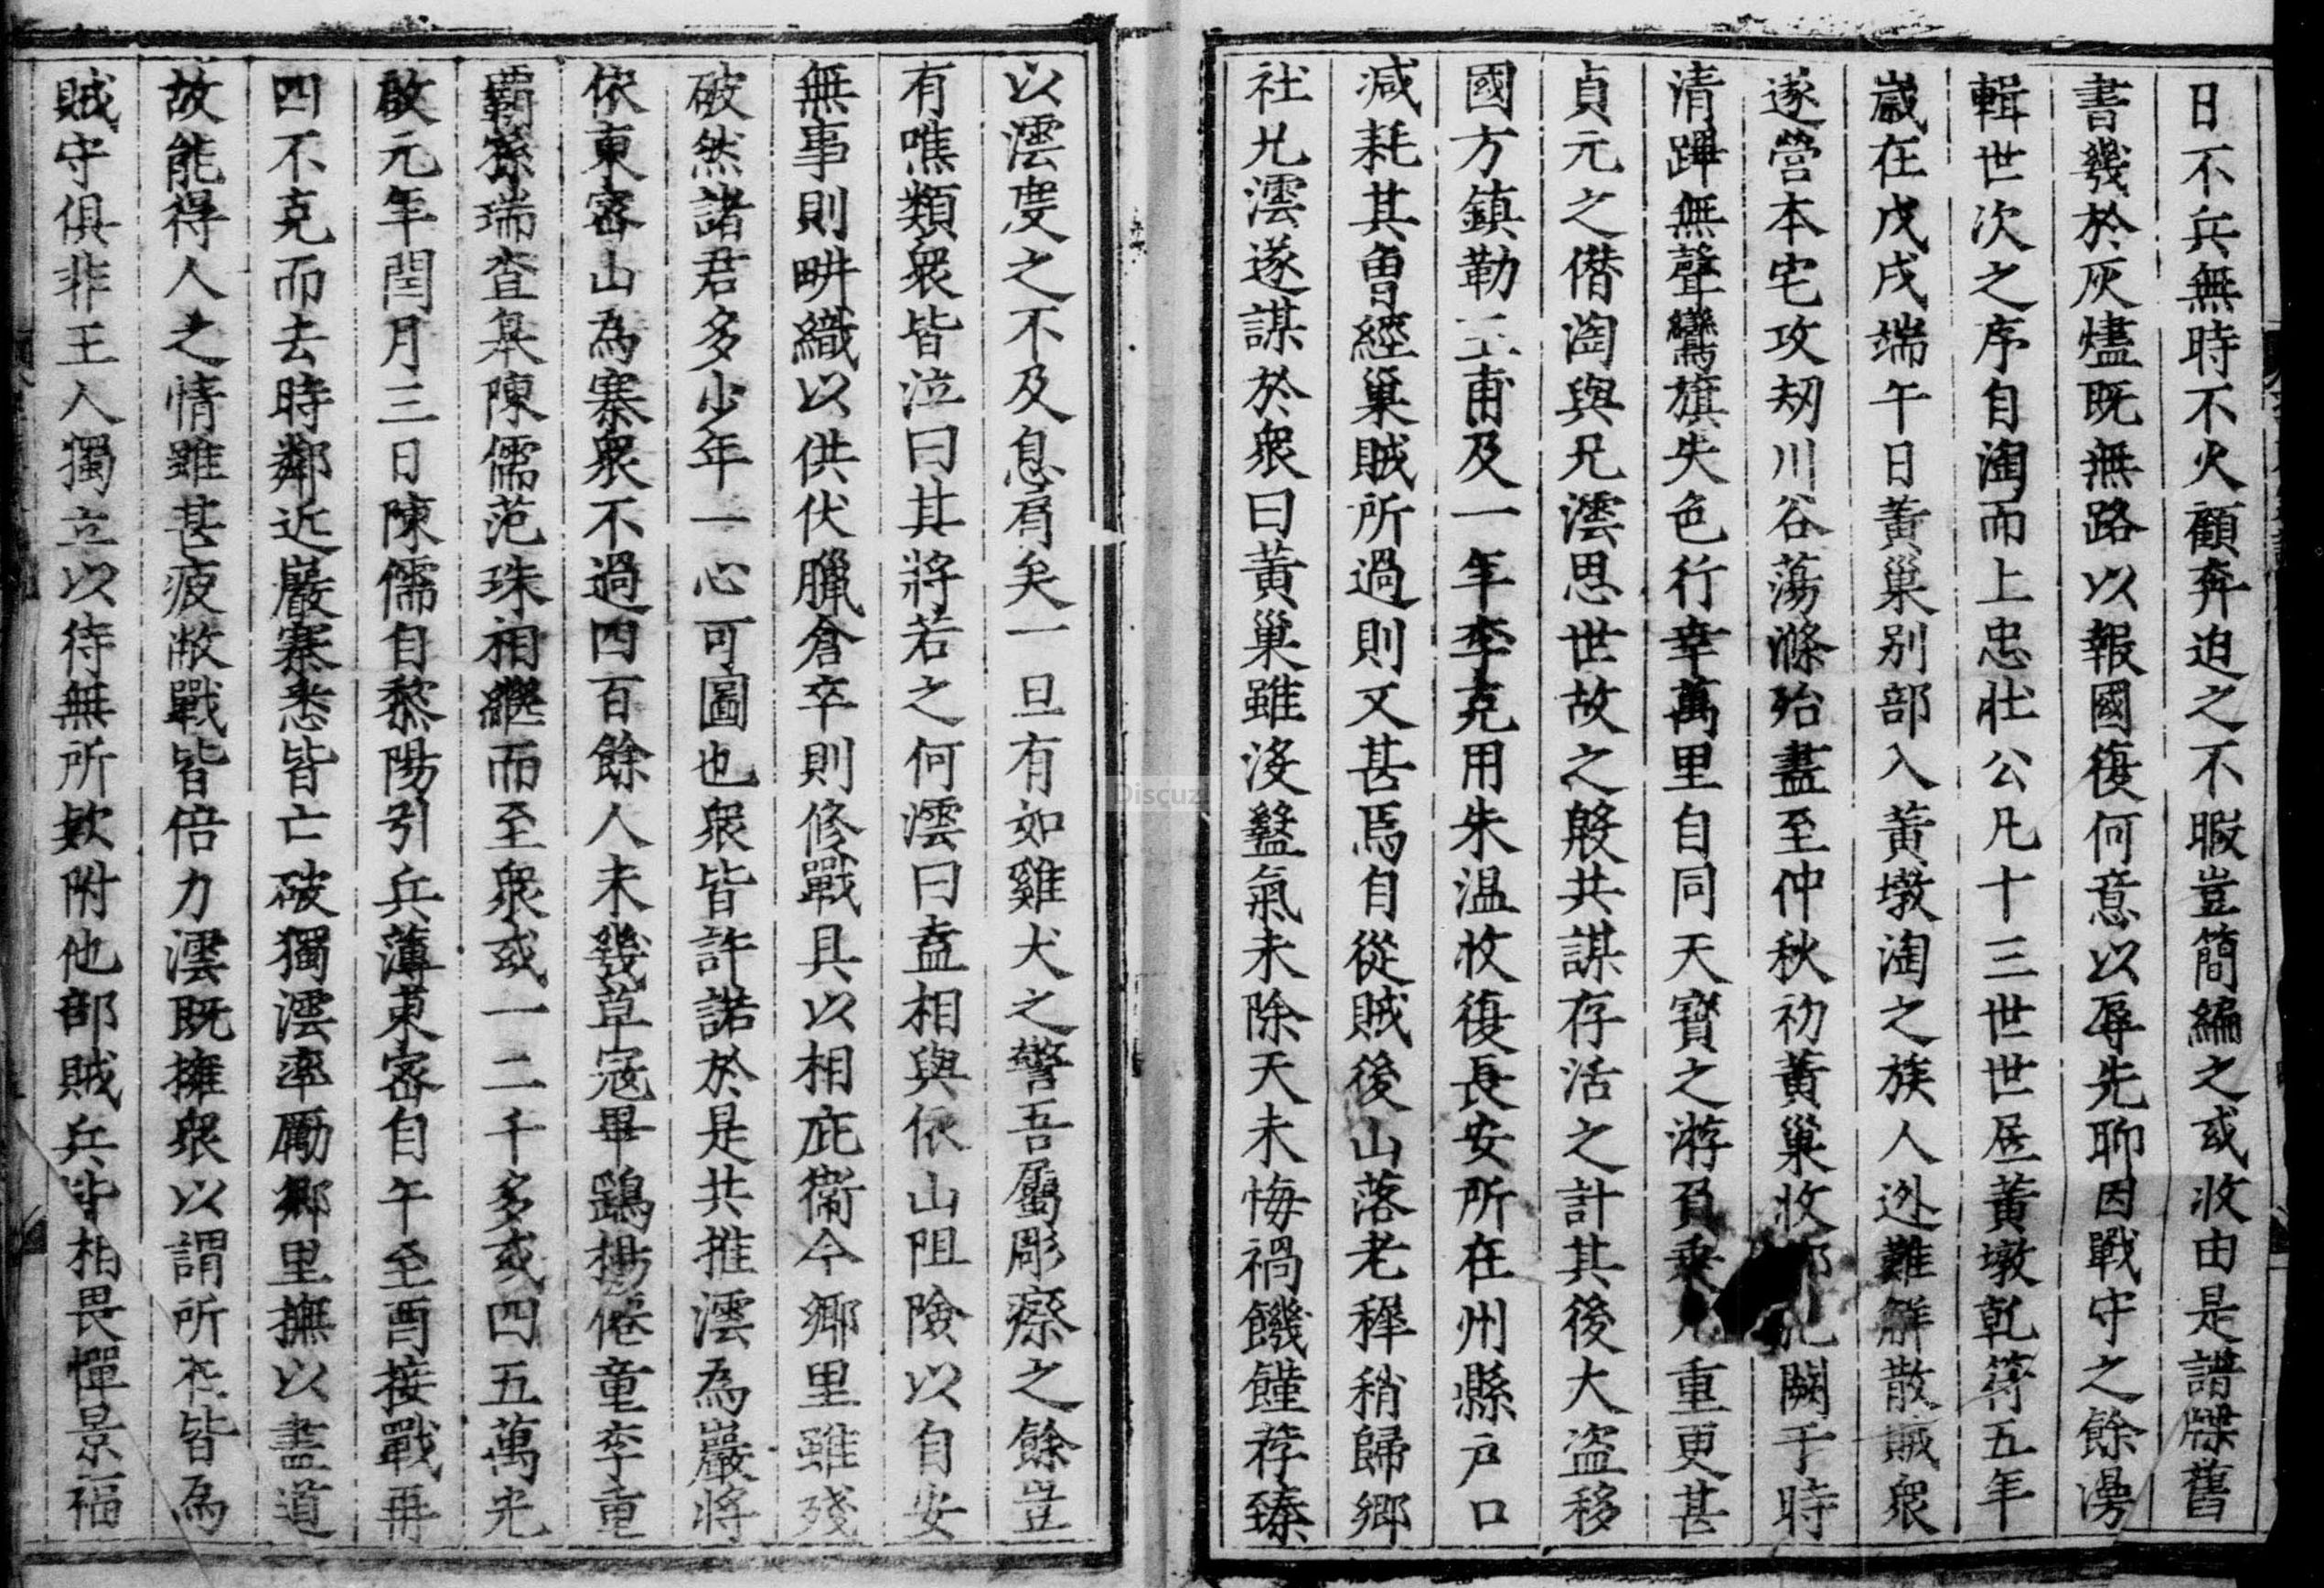 日不兵無時不火顧奔迫之不暇豈簡編之或收由是譜牒舊
書幾於灰燼既無路以報國復何意以辱先聊因戰守之餘漫
輯世次之序自淘而上忠壯公凡十三世世居黃墩乾符五年
歲在戊戌端午日黃巢别部入黃墩淘之族人迯難解散賊衆
遂營本宅攻刼川谷蕩滌殆盡至仲秋初黃巢收闕于時
清蹕無聲鸞旗失色行幸萬里自同天寶之游負乘重更甚
貞元之僭淘與兄澐思世故之艱共謀存活之計其後大盜移
國方鎮勒王甫及一年李克用朱温收復長安所在州縣戶口
減耗其曾經巢賊所過則又甚焉自從賊後山落老稺稍歸鄉
社兄澐遂謀於衆曰黃巢雖沒盭氣未除天未悔禍饑饉荐臻
以澐度之不及息肩矣一旦有如雞犬之警吾屬彫瘵之餘豈
有噍類衆皆泣曰其將若之何澐曰盍相與依山阻險以自安
無事則畊織以供伏臘倉卒則修戰具以相庇衞今鄉里雖殘
破然諸君多少年一心可圖也衆皆許諾於是共推澐為巖將
依東密山為寨衆不過四百餘人未幾草寇畢鷂楊倦童李重
霸孫瑞查臯陳儒范珠相繼而至衆或一二千多或四五萬光
啟元年閏月三日陳儒自黎陽引兵薄東密自午至酉接戰再
四不克而去時鄰近巖寨悉皆亡破獨澐率勵鄉里撫以盡道
故能得人之情雖甚疲敝戰皆倍力澐既擁衆以謂所在皆為
賊守俱非王人獨立以待無所欵附他部賊兵皆相畏憚景福
Discuz!